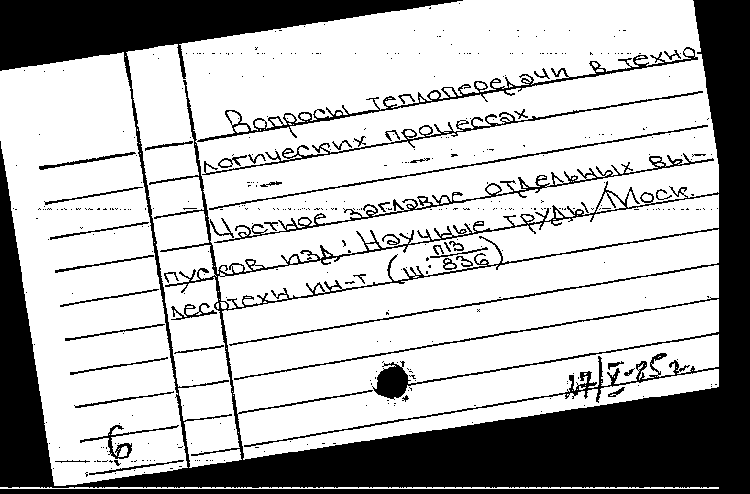 Вопросы теплопередачи в техно-
логических процессах.
Частное заглавие отдельных вы-
пусков изд.: Научные труды/Моск.
лесотехн. ин-т. (Ш: П13/836)
27/V-85г.
6